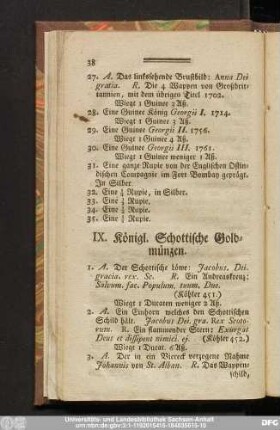 38
27. A. Das linkssehende Brustbild: Anna Dei
gratia. R. Die 4 Wappen von Großbrit-
tannien, mit dem übrigen Titel 1702.
Wiegt 1 Guinee 2 Aß.
28. Eine Guinee König Georgii I. 1714.
Wiegt 1 Guinee 3 Aß.
29. Eine Guinee Georgii II. 1756.
Wiegt 1 Guinee 4 Aß.
30. Eine Guinee Georgii III. 1761.
Wiegt 1 Guinee weniger 1 Aß.
31. Eine ganze Rupie von der Englischen Ostin-
dischen Compagnie im Fort Bombay geprägt.
In Silber.
32. Eine Rupie, in Silber.
33. Eine Rupie.
34. Eine Rupie.
35. Eine Rupie.
IX. Königl. Schottische Gold-
münzen.
1. A. Der Schottische Löwe: Jacobus. Dei.
gracia. rex. Sc. R. Ein Andreaskreuz:
Salvum. fac. Populum. tuum. Dne.
(Köhler 451.)
Wiegt 1 Ducaten weniger 2 Aß.
2. A. Ein Einhorn welches den Schottischen
Schild hält. Jacobus Dei. gra. Rex Scoto-
rum. R. Ein flammender Stern: Exurgat
Deus et dissipent nimici ej. (Köhler 452.)
Wiegt 1 Ducat. 6 Aß.
3. A. Der in ein Viereck verzogene Nahme
Johannis von St. Alban. R. Das Wappen-
schild,
Universitäts- und Landesbibliothek Sachsen-Anhalt
DFG